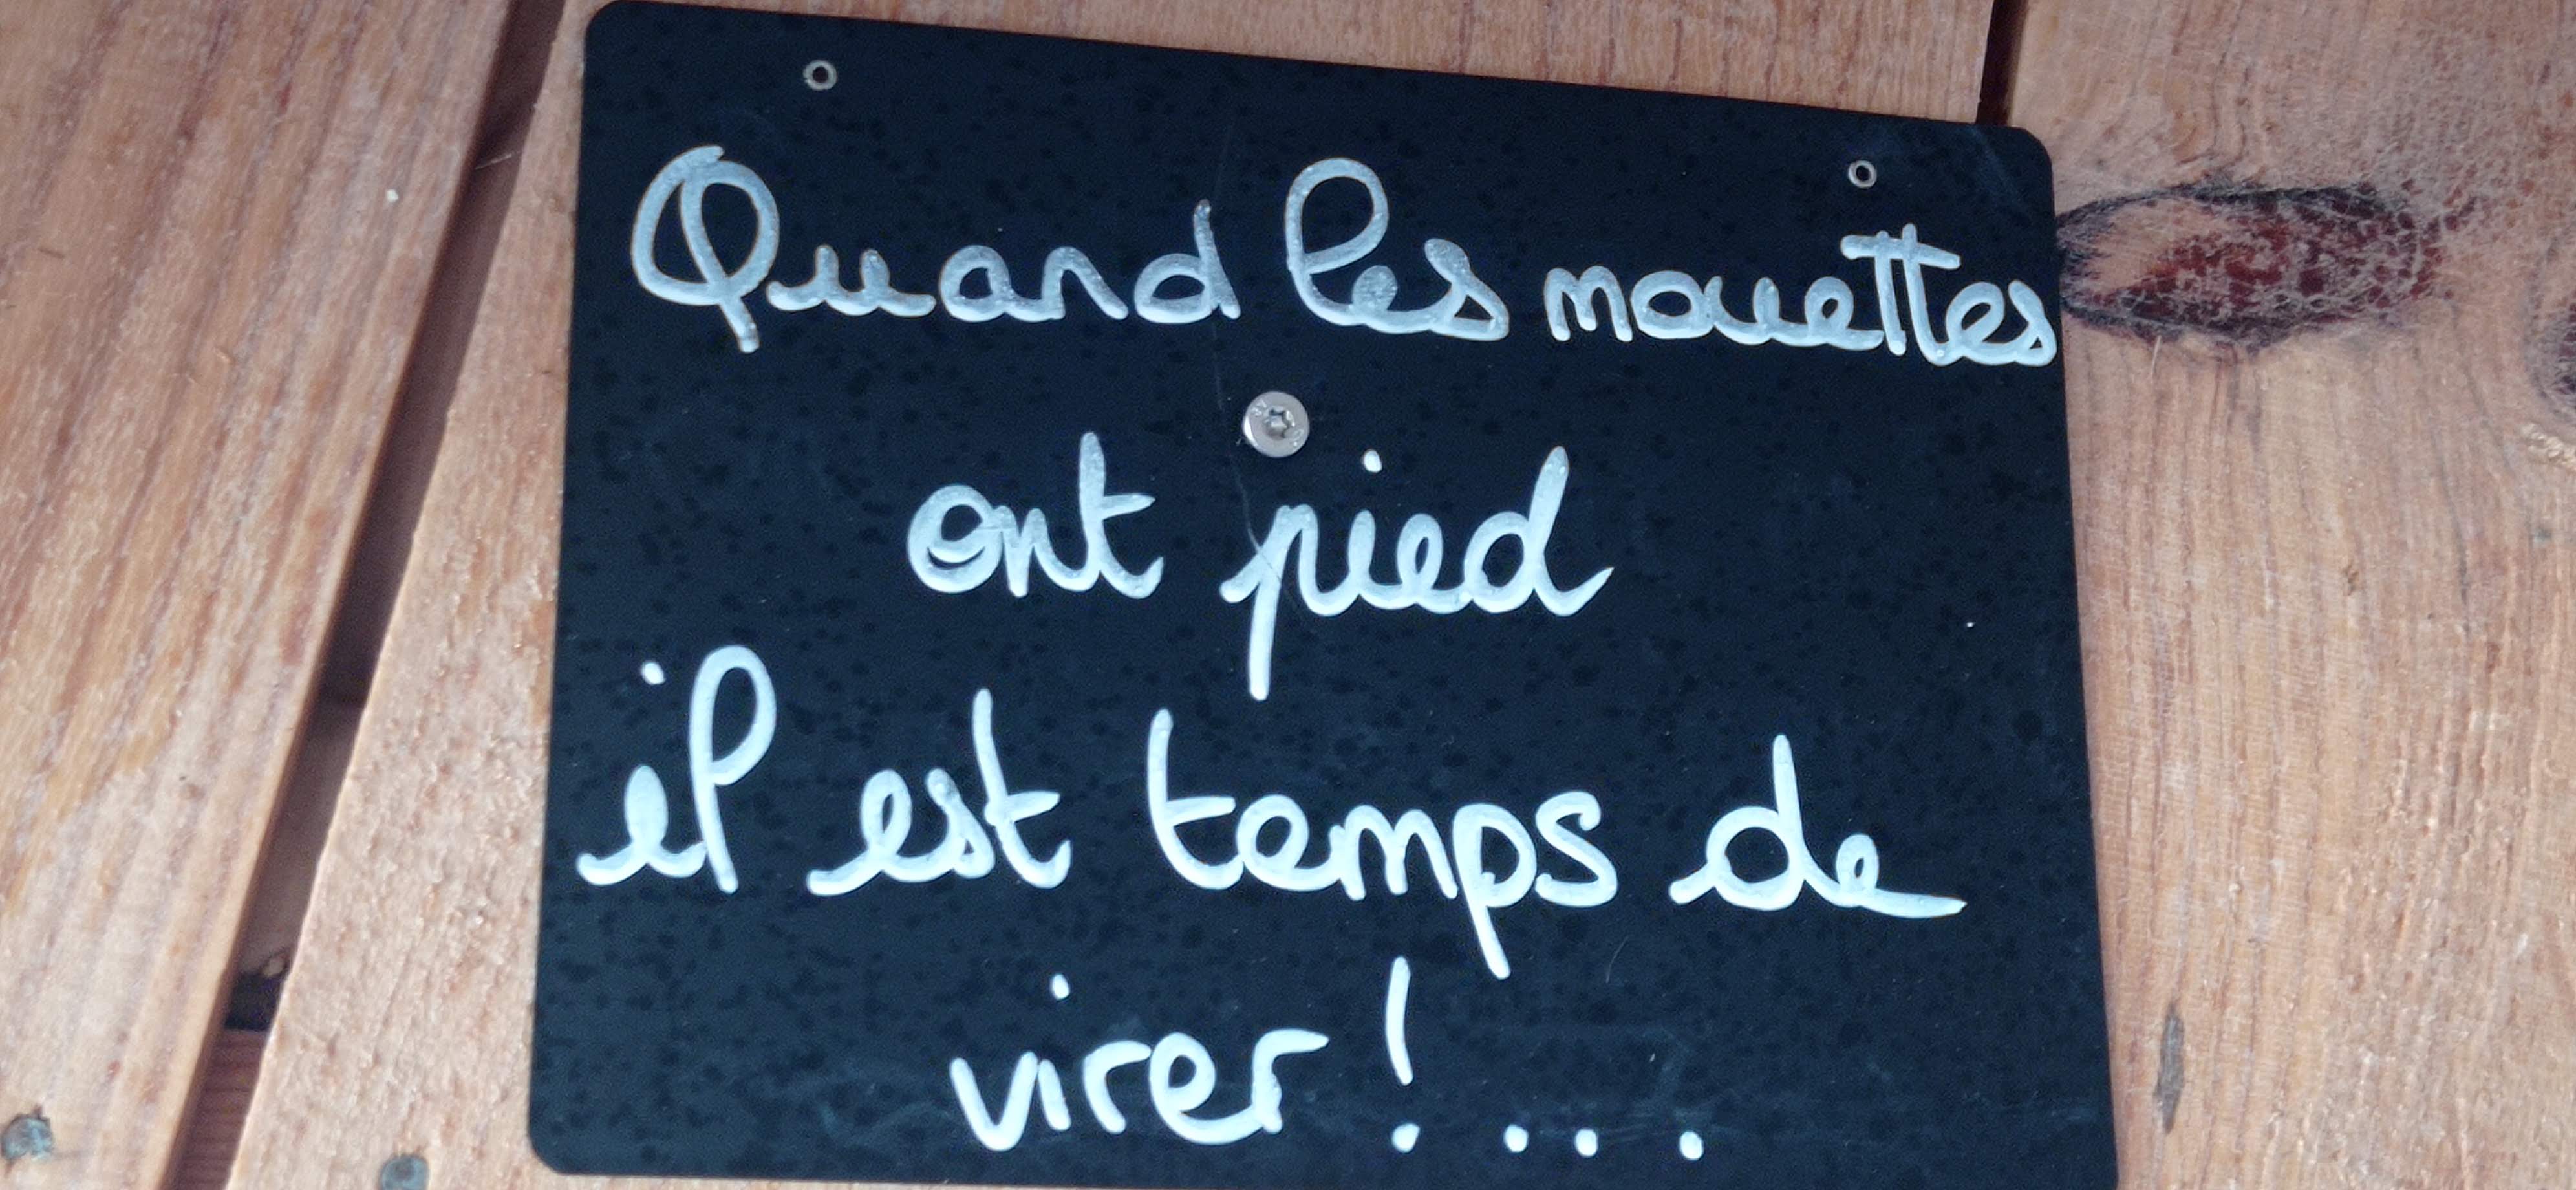 Quand les mouettes
ont pied
il est temps de
virer !...